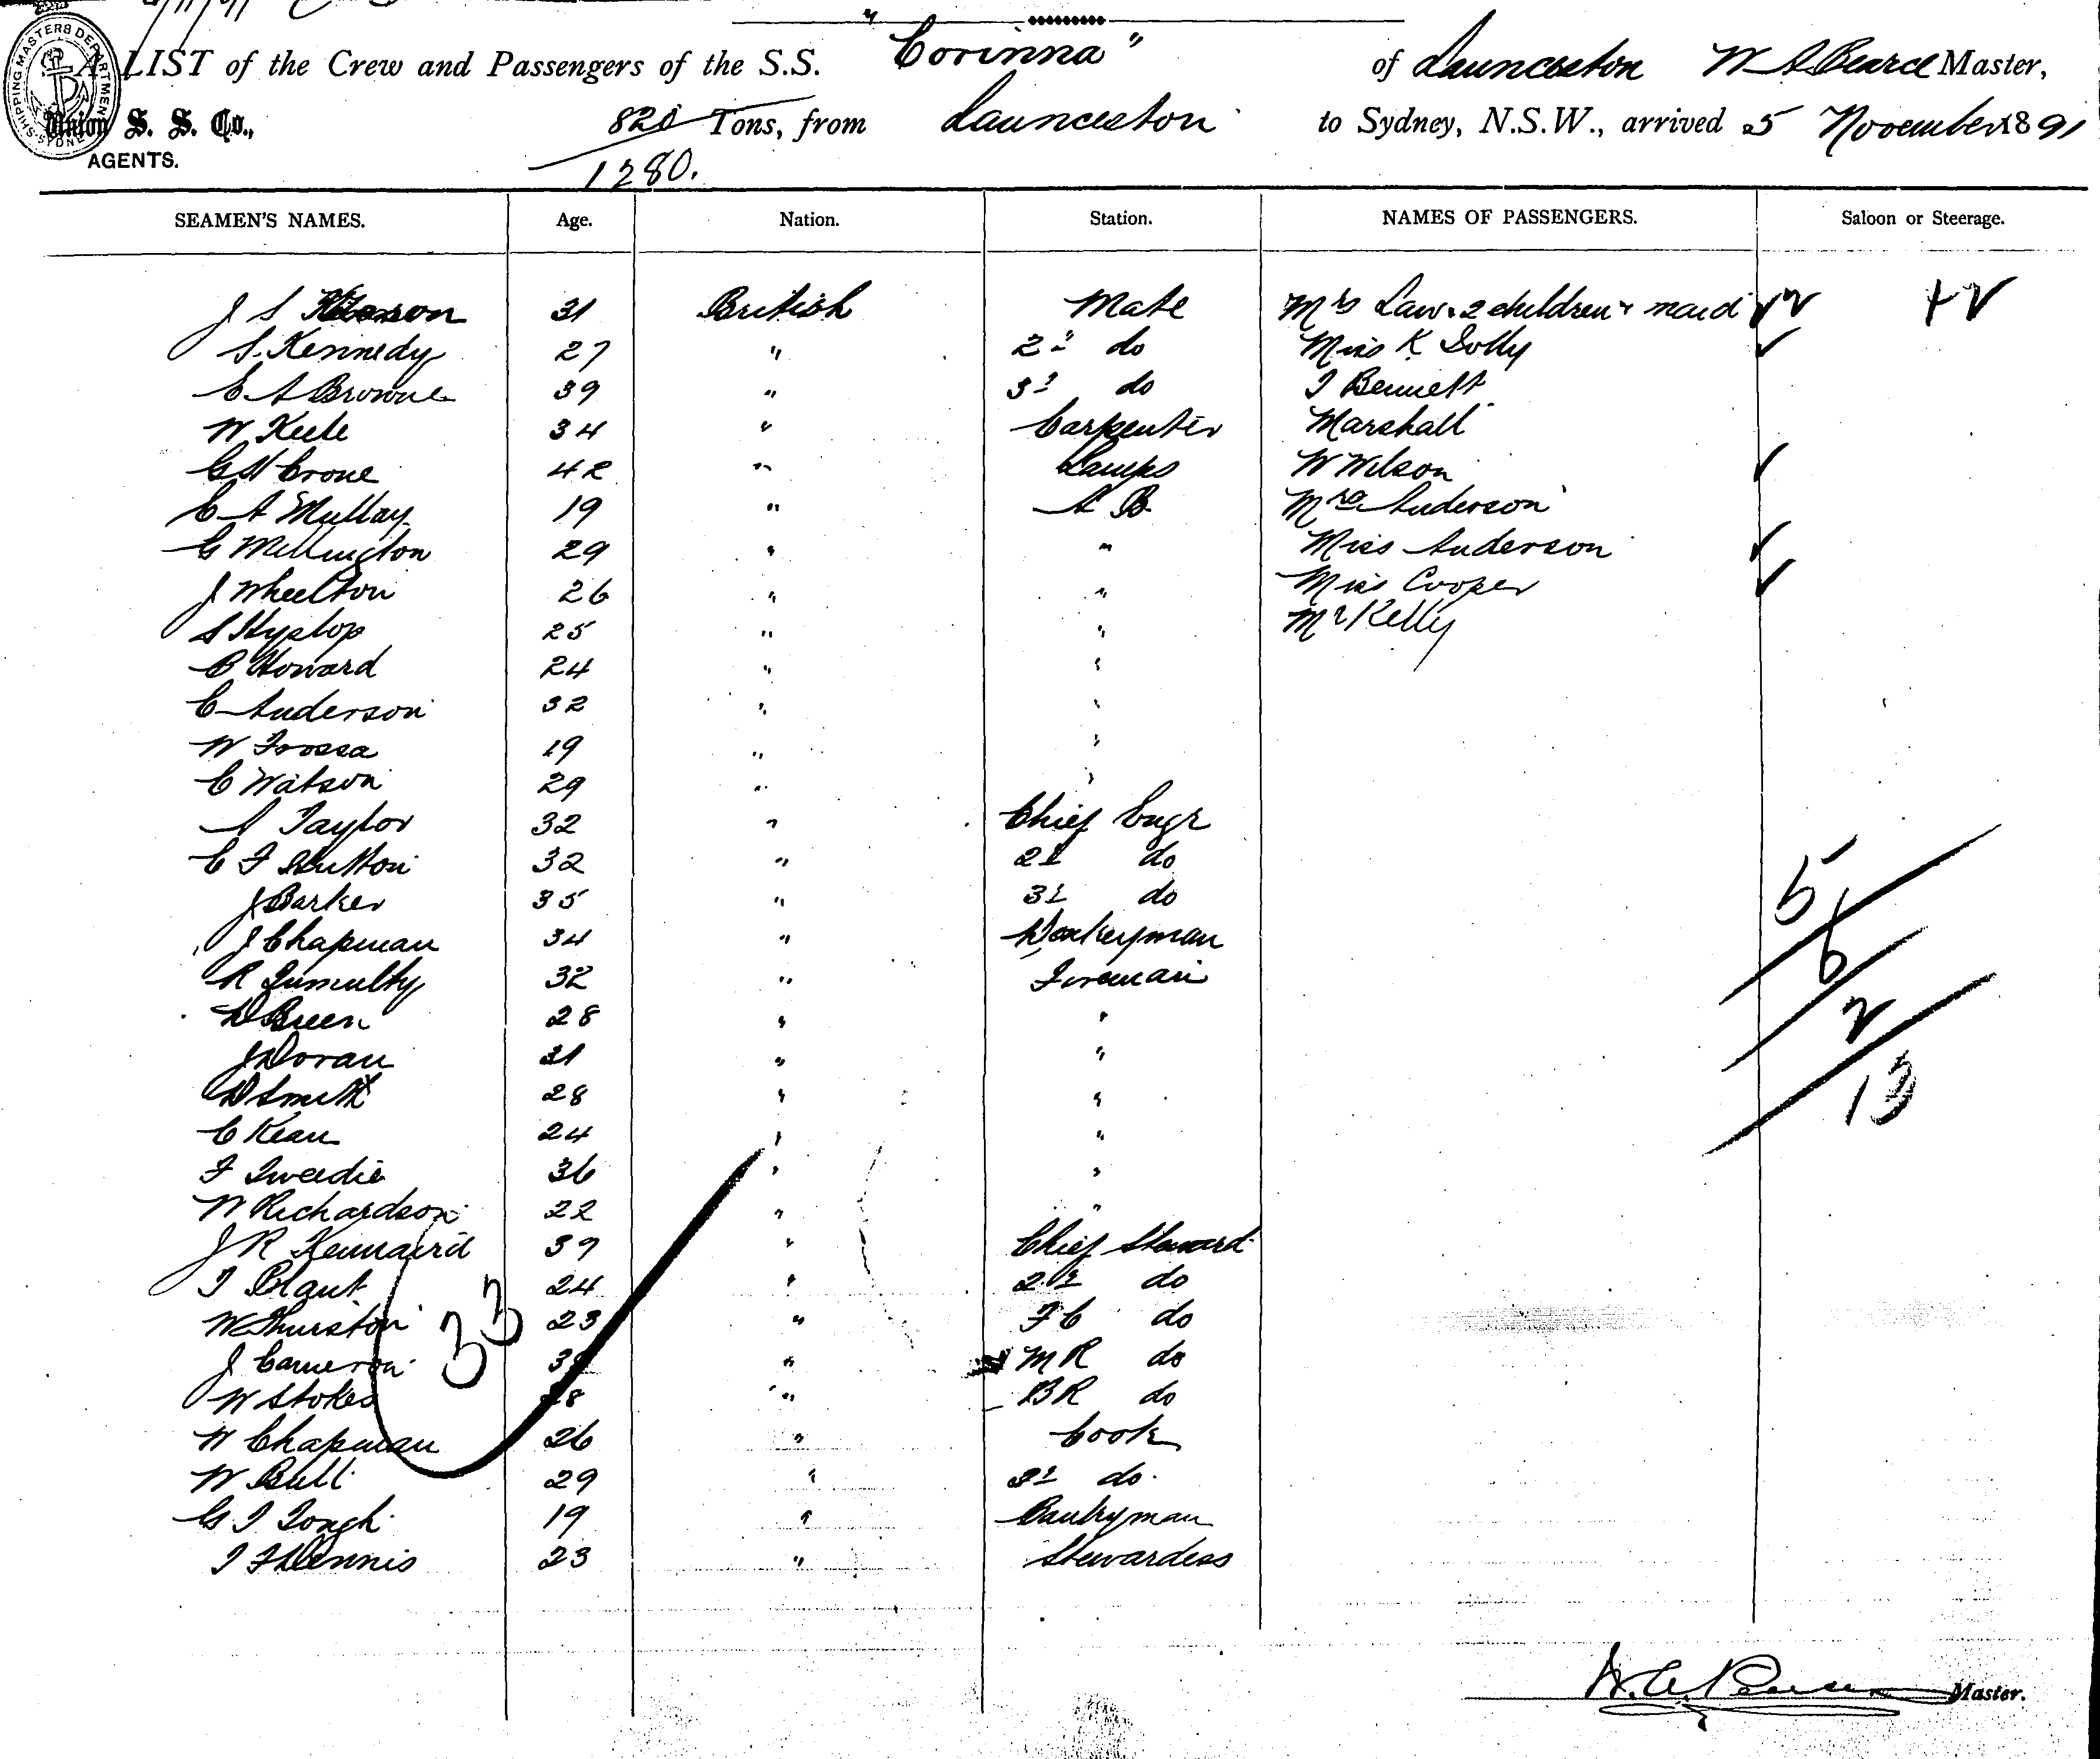 A LIST of the Crew and Passengers of the S.S. "Corinna" of Launceston W A Pearce Master,
Union S. S. Co., 820 Tons, from Launceston to Sydney, N.S.W., arrived 5 November 1891
AGENTS. 1280.
SHIPPING MASTERS DEPARTMENT SYDNEY
SEAMEN'S NAMES. Age. Nation. Station. NAMES OF PASSENGERS. Saloon or Steerage.
J S 31 British Mate Mrs Law 2 children + maid
S. Kennedy 27 " 2d do Miss K Solly
E A Browne 39 " 3d do T Bennett
W Keele 34 " Carpenter Marshall
G H Crone 42 " Lamps W Wilson
E A Mullay 19 " A B Mrs Anderson
G Millington 29 " " Miss Anderson
J Wheelton 26 " " Miss Cooper
S Hyslop 25 " " Mr Kelly
B Howard 24 " "
C Anderson 32 " "
W Frossa 19 " "
C Watson 29 " "
A Taylor 32 " Chief Engr
C F Hutton 32 " 2d do
J Barker 35 " 3d do
J Chapman 34 " Donkeyman
R Jumulty 32 " Fireman
D Breen 28 " "
J Doran 31 " "
D Smith 28 " "
C Kean 24 " "
F Tweedie 36 " "
W Richardson 22 " "
J R Kennaird 39 " Chief Steward
T Plant 24 " 2d do
W Thurston 23 " F C do
J Cameron " M R do
W Stokes 28 " B R do
W Chapman 26 " Cook
W Bull 29 " 2d do
G T Tongh 19 " Pantryman
T F Dennis 23 " Stewardess
33
5
6
2
13
W. A. Pearce Master.